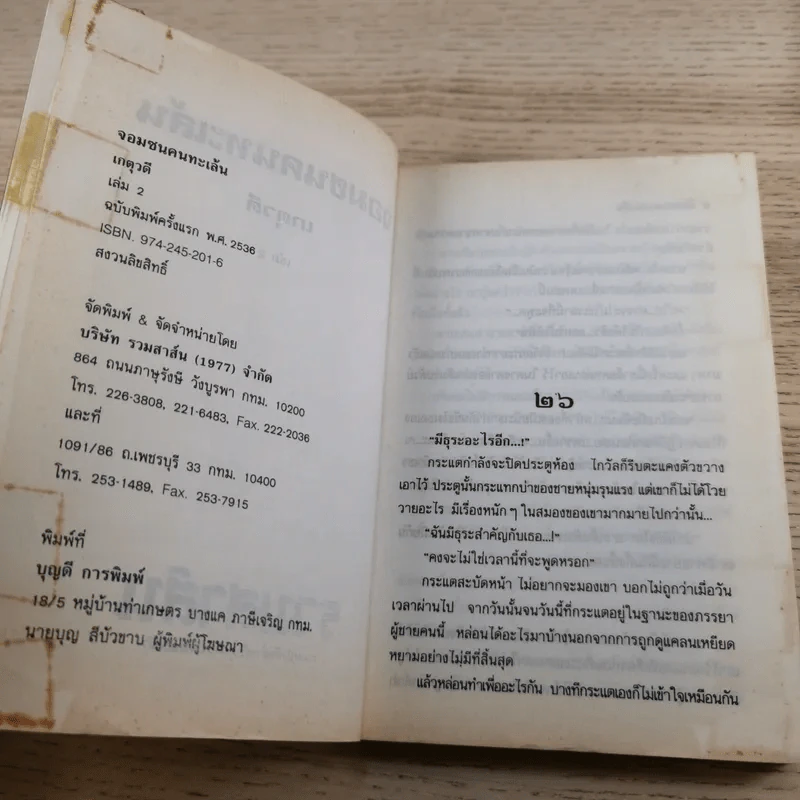 จอมซนคนทะเล้น
เกตุวดี
เล่ม 2
ฉบับพิมพ์ครั้งแรก พ.ศ. 2536
ISBN. 974-245-201-6
สงวนลิขสิทธิ์
จัดพิมพ์ & จัดจำหน่ายโดย
บริษัท รวมสาส์น (1977) จำกัด
864 ถนนภาษุรังษี วังบูรพา กทม. 10200
โทร. 226-3808, 221-6483, Fax. 222-2036
และที่
1091/86 ถ.เพชรบุรี 33 กทม. 10400
โทร. 253-1489, Fax. 253-7915
พิมพ์ที่
บุญดี การพิมพ์
18/5 หมู่บ้านท่าเกษตร บางแค ภาษีเจริญ กทม.
นายบุญ สีบัวขาบ ผู้พิมพ์ผู้โฆษณา
๒๖
"มีธุระอะไรอีก...!"
กระแตกำลังจะปิดประตูห้อง ไกวัลก็รีบตะแคงตัวขวาง
เอาไว้ ประตูนั้นกระแทกบ่าของชายหนุ่มรุนแรง แต่เขาก็ไม่ได้โวย
วายอะไร มีเรื่องหนัก ๆ ในสมองของเขามากมายไปกว่านั้น...
"ฉันมีธุระสำคัญกับเธอ...!"
"คงจะไม่ใช่เวลานี้ที่จะพูดหรอก"
กระแตสะบัดหน้า ไม่อยากจะมองเขา บอกไม่ถูกว่าเมื่อวัน
เวลาผ่านไป จากวันนั้นจนวันนี้ที่กระแตอยู่ในฐานะของภรรยา
ผู้ชายคนนี้ หล่อนได้อะไรมาบ้างนอกจากการถูกดูแคลนเหยียด
หยามอย่างไม่มีที่สิ้นสุด
แล้วหล่อนทำเพื่ออะไรกัน บางทีกระแตเองก็ไม่เข้าใจเหมือนกัน